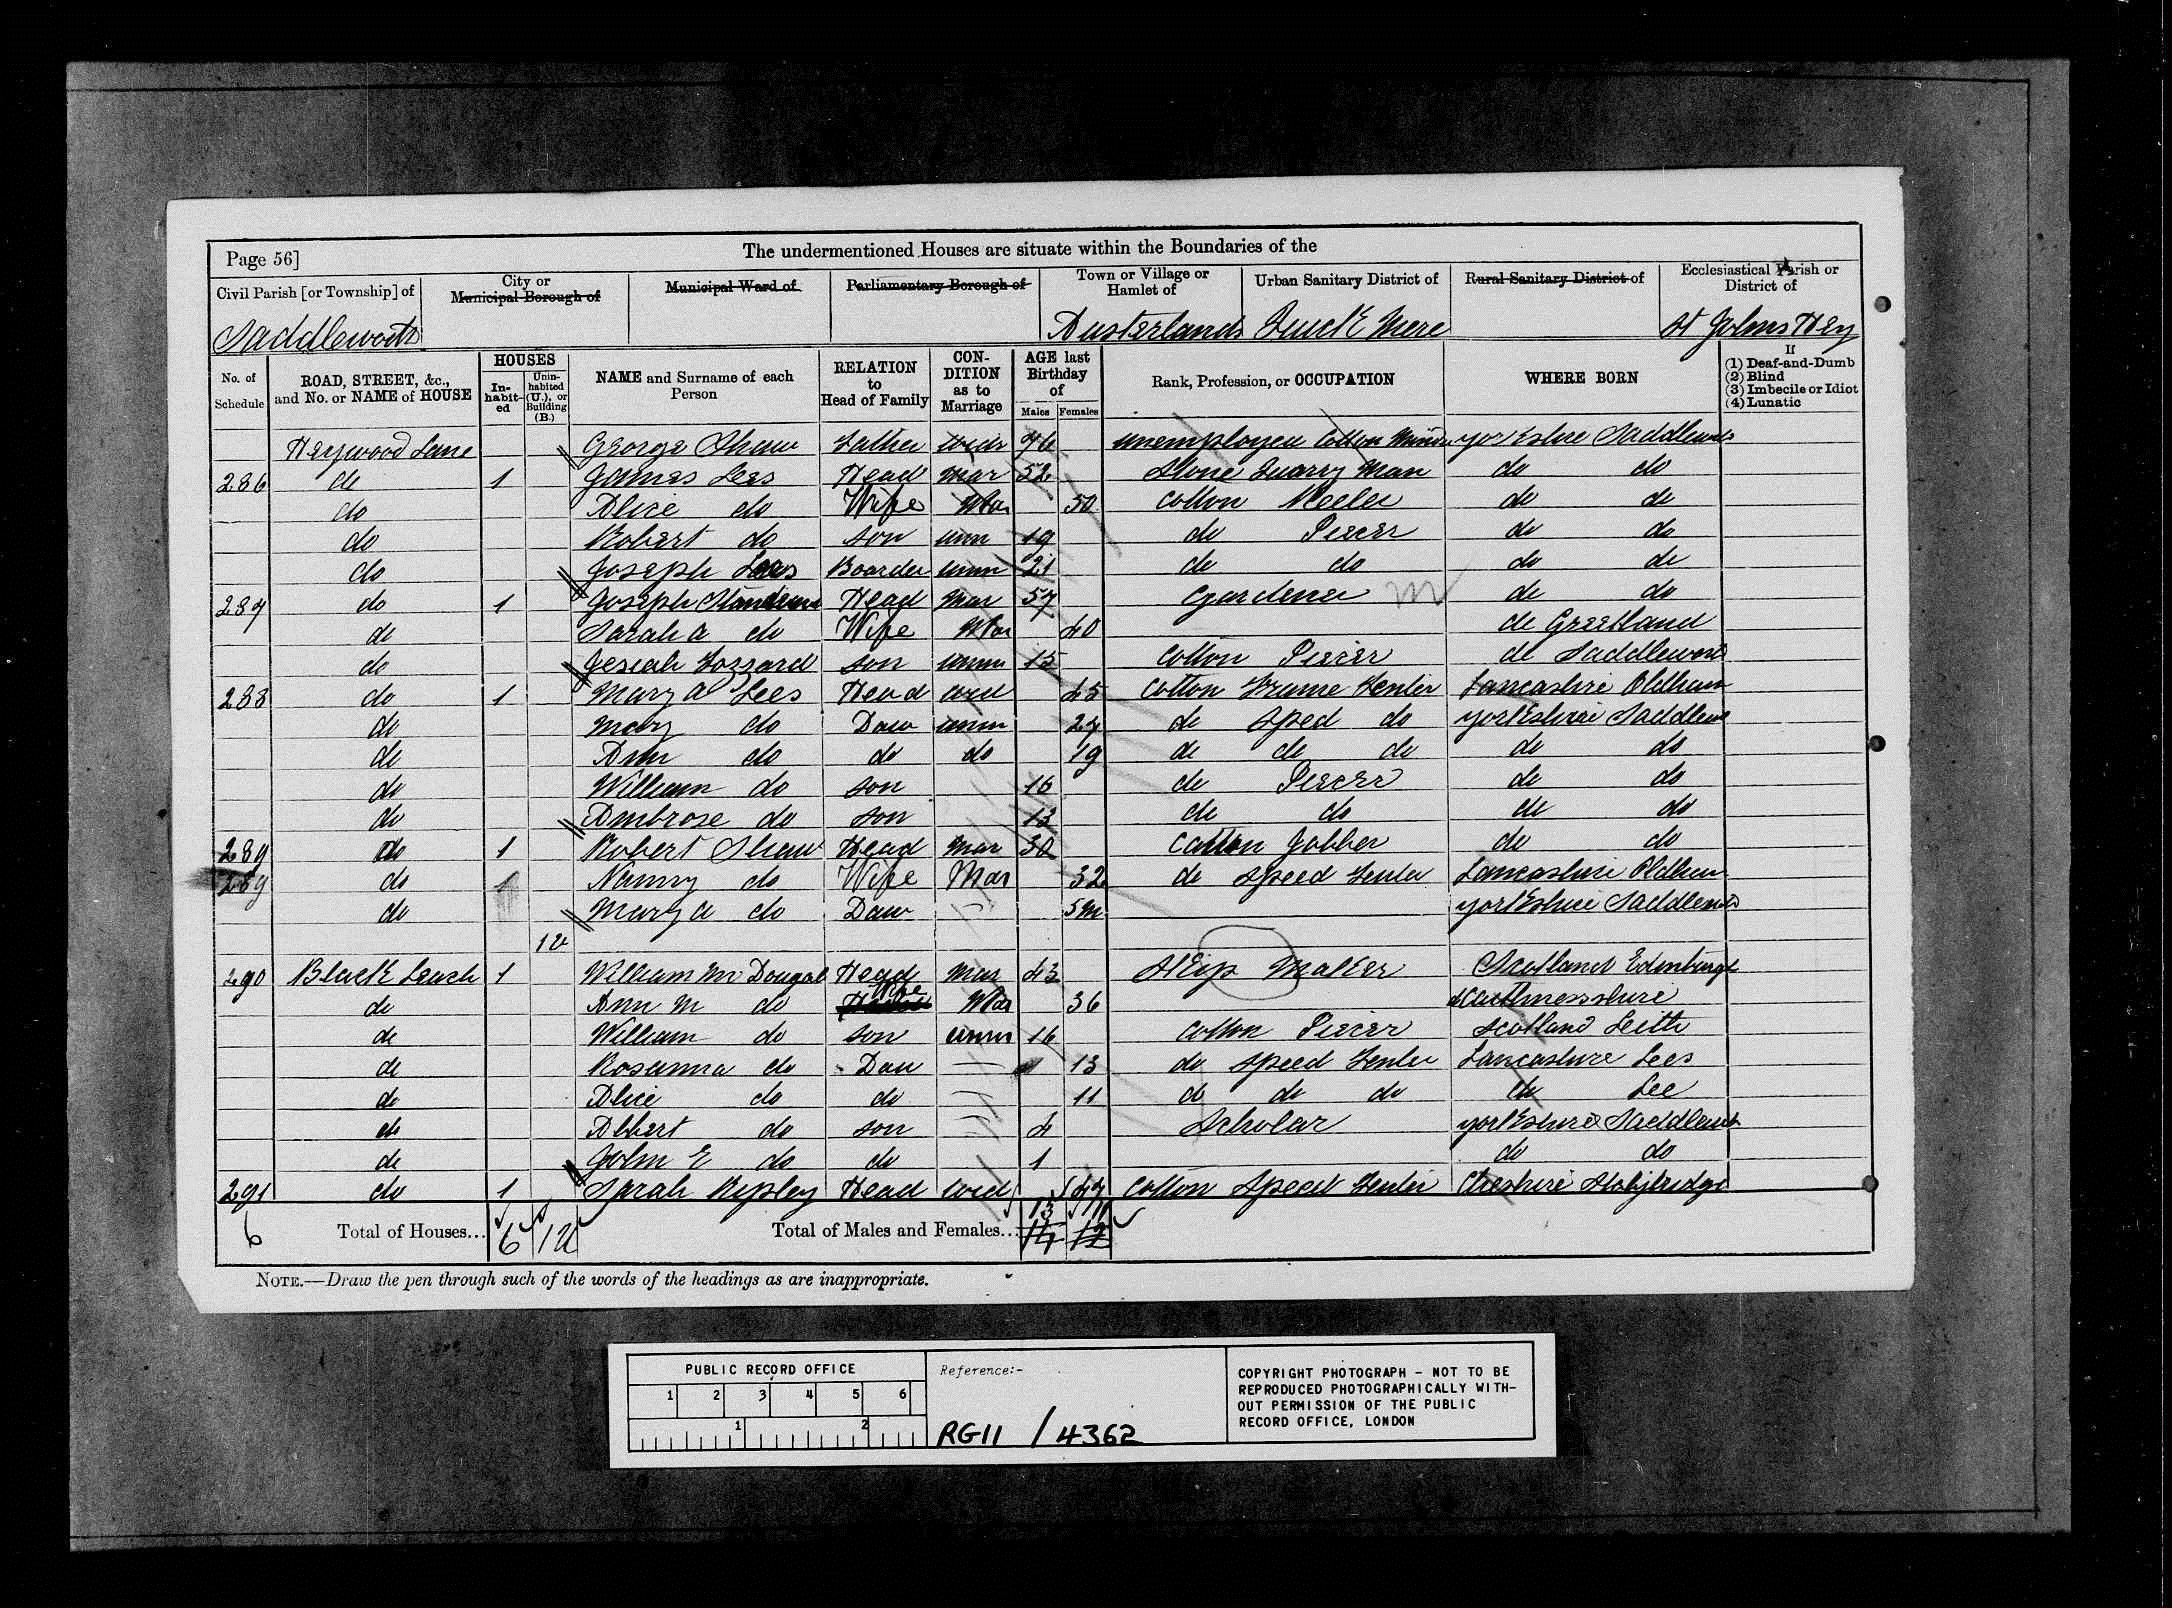 Page 56]
The undermentioned Houses are situate within the Boundaries of the
Civil Parish [or Township] of City or Municipal Borough of Municipal Ward of Parliamentary Borough of Town or Village or Hamlet of Urban Sanitary District of Rural Sanitary District of Ecclesiastical Parish or District of
Saddleworth Austerlands Quick Mere St Johns Hey
No. of Schedule ROAD, STREET, &c., and No. or NAME of HOUSE HOUSES Inhabited Uninhabited (U.), or Building (B.) NAME and Surname of each Person RELATION to Head of Family CONDITION as to Marriage AGE last Birthday of Males Females Rank, Profession, or OCCUPATION WHERE BORN If (1) Deaf-and-Dumb (2) Blind (3) Imbecile or Idiot (4) Lunatic
Heywood Lane George Shaw Father widr 76 unemployed Cotton yorkshire Saddlewo
286 do 1 James Lees Head mar 52 Stone Quarry Man do do
do Alice do Wife Mar 50 Cotton Reeler do do
do Robert do son unm 19 do Piecer do do
do Joseph Lees Boarder unm 21 do do do do
287 do 1 Joseph Head Mar 57 Gardener do do
do Sarah A do Wife Mar 40 do Greetland
do Jesiah Lozzard son unm 15 Cotton Piecer do Saddlewor
288 do 1 Mary A Lees Head wid 45 Cotton Frame Tenter Lancashire Oldham
do Mary do Daw unm 27 do Speed do yorkshire Saddlew
do Ann do do do 19 do do do do do
do William do son 16 do Piecer do do
do Ambrose do son 13 do do do do
289 do 1 Robert Shaw Head Mar 30 Cotton Jobber do do
289 do 1 Nancy do Wife Mar 32 do Speed Tenter Lancashire Oldham
do Mary A do Daw 5m yorkshire Saddlewo
1u
290 Black Leach 1 William Mc Dougal Head Mar 43 Skip Maker Scotland Edinburgh
do Ann M do Wife Mar 36 do Caithnessshire
do William do son unm 16 Cotton Piecer Scotland Leith
do Rosanna do Dau 13 do Speed Tenter Lancashire Lees
do Alice do do 11 do do do do Lee
do Albert do son 4 Scholar yorkshire Saddlewo
do John E do do 1 do do
291 do 1 Sarah Ripley Head wid 47 Cotton Speed Tenter Cheshire Stalybridge
13 11
6 Total of Houses... 6 1u Total of Males and Females... 14 12
NOTE.—Draw the pen through such of the words of the headings as are inappropriate.
PUBLIC RECORD OFFICE
1 2 3 4 5 6
1 2
Reference:-
RG11 / 4362
COPYRIGHT PHOTOGRAPH - NOT TO BE
REPRODUCED PHOTOGRAPHICALLY WITH-
OUT PERMISSION OF THE PUBLIC
RECORD OFFICE, LONDON